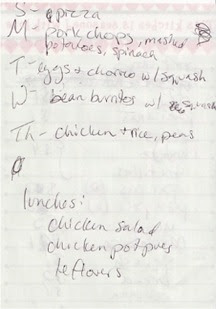 S - pizza
M - pork chops, mashed
potatoes, spinach
T - eggs + chorizo w/ squash
W - bean burritos w/ squash
Th - chicken + rice, peas
lunches:
chicken salad
chicken pot pies
leftovers